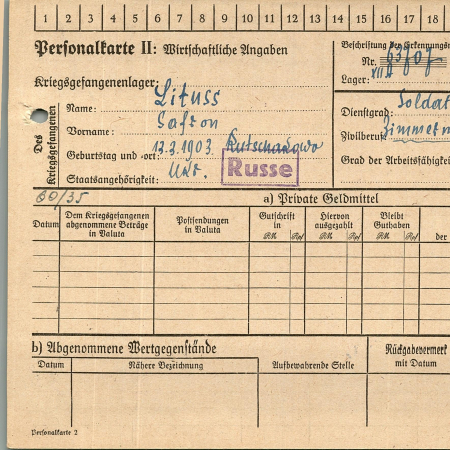 1 2 3 4 5 6 7 8 9 10 11 12 13 14 15 16 17 18
Personalkarte II: Wirtschaftliche Angaben
Beschriftung der Erkennungsm
Nr. 63707
Lager: VIII A
Kriegsgefangenenlager:
Des Kriegsgefangenen
Name: Lituss
Vorname: Safron
Geburtstag und -ort: 13.3.1903
Staatsangehörigkeit: Ukr. Russe
Dienstgrad: Soldat
Zivilberuf: Zimmerm
Grad der Arbeitsfähigkeit
60/35
a) Private Geldmittel
Datum
Dem Kriegsgefangenen abgenommene Beträge in Valuta
Postsendungen in Valuta
Gutschrift in
RM Rpf
Hiervon ausgezahlt
RM Rpf
Bleibt Guthaben
RM Rpf
der
b) Abgenommene Wertgegenstände
Datum
Nähere Bezeichnung
Aufbewahrende Stelle
Rückgabevermerk mit Datum
Personalkarte 2